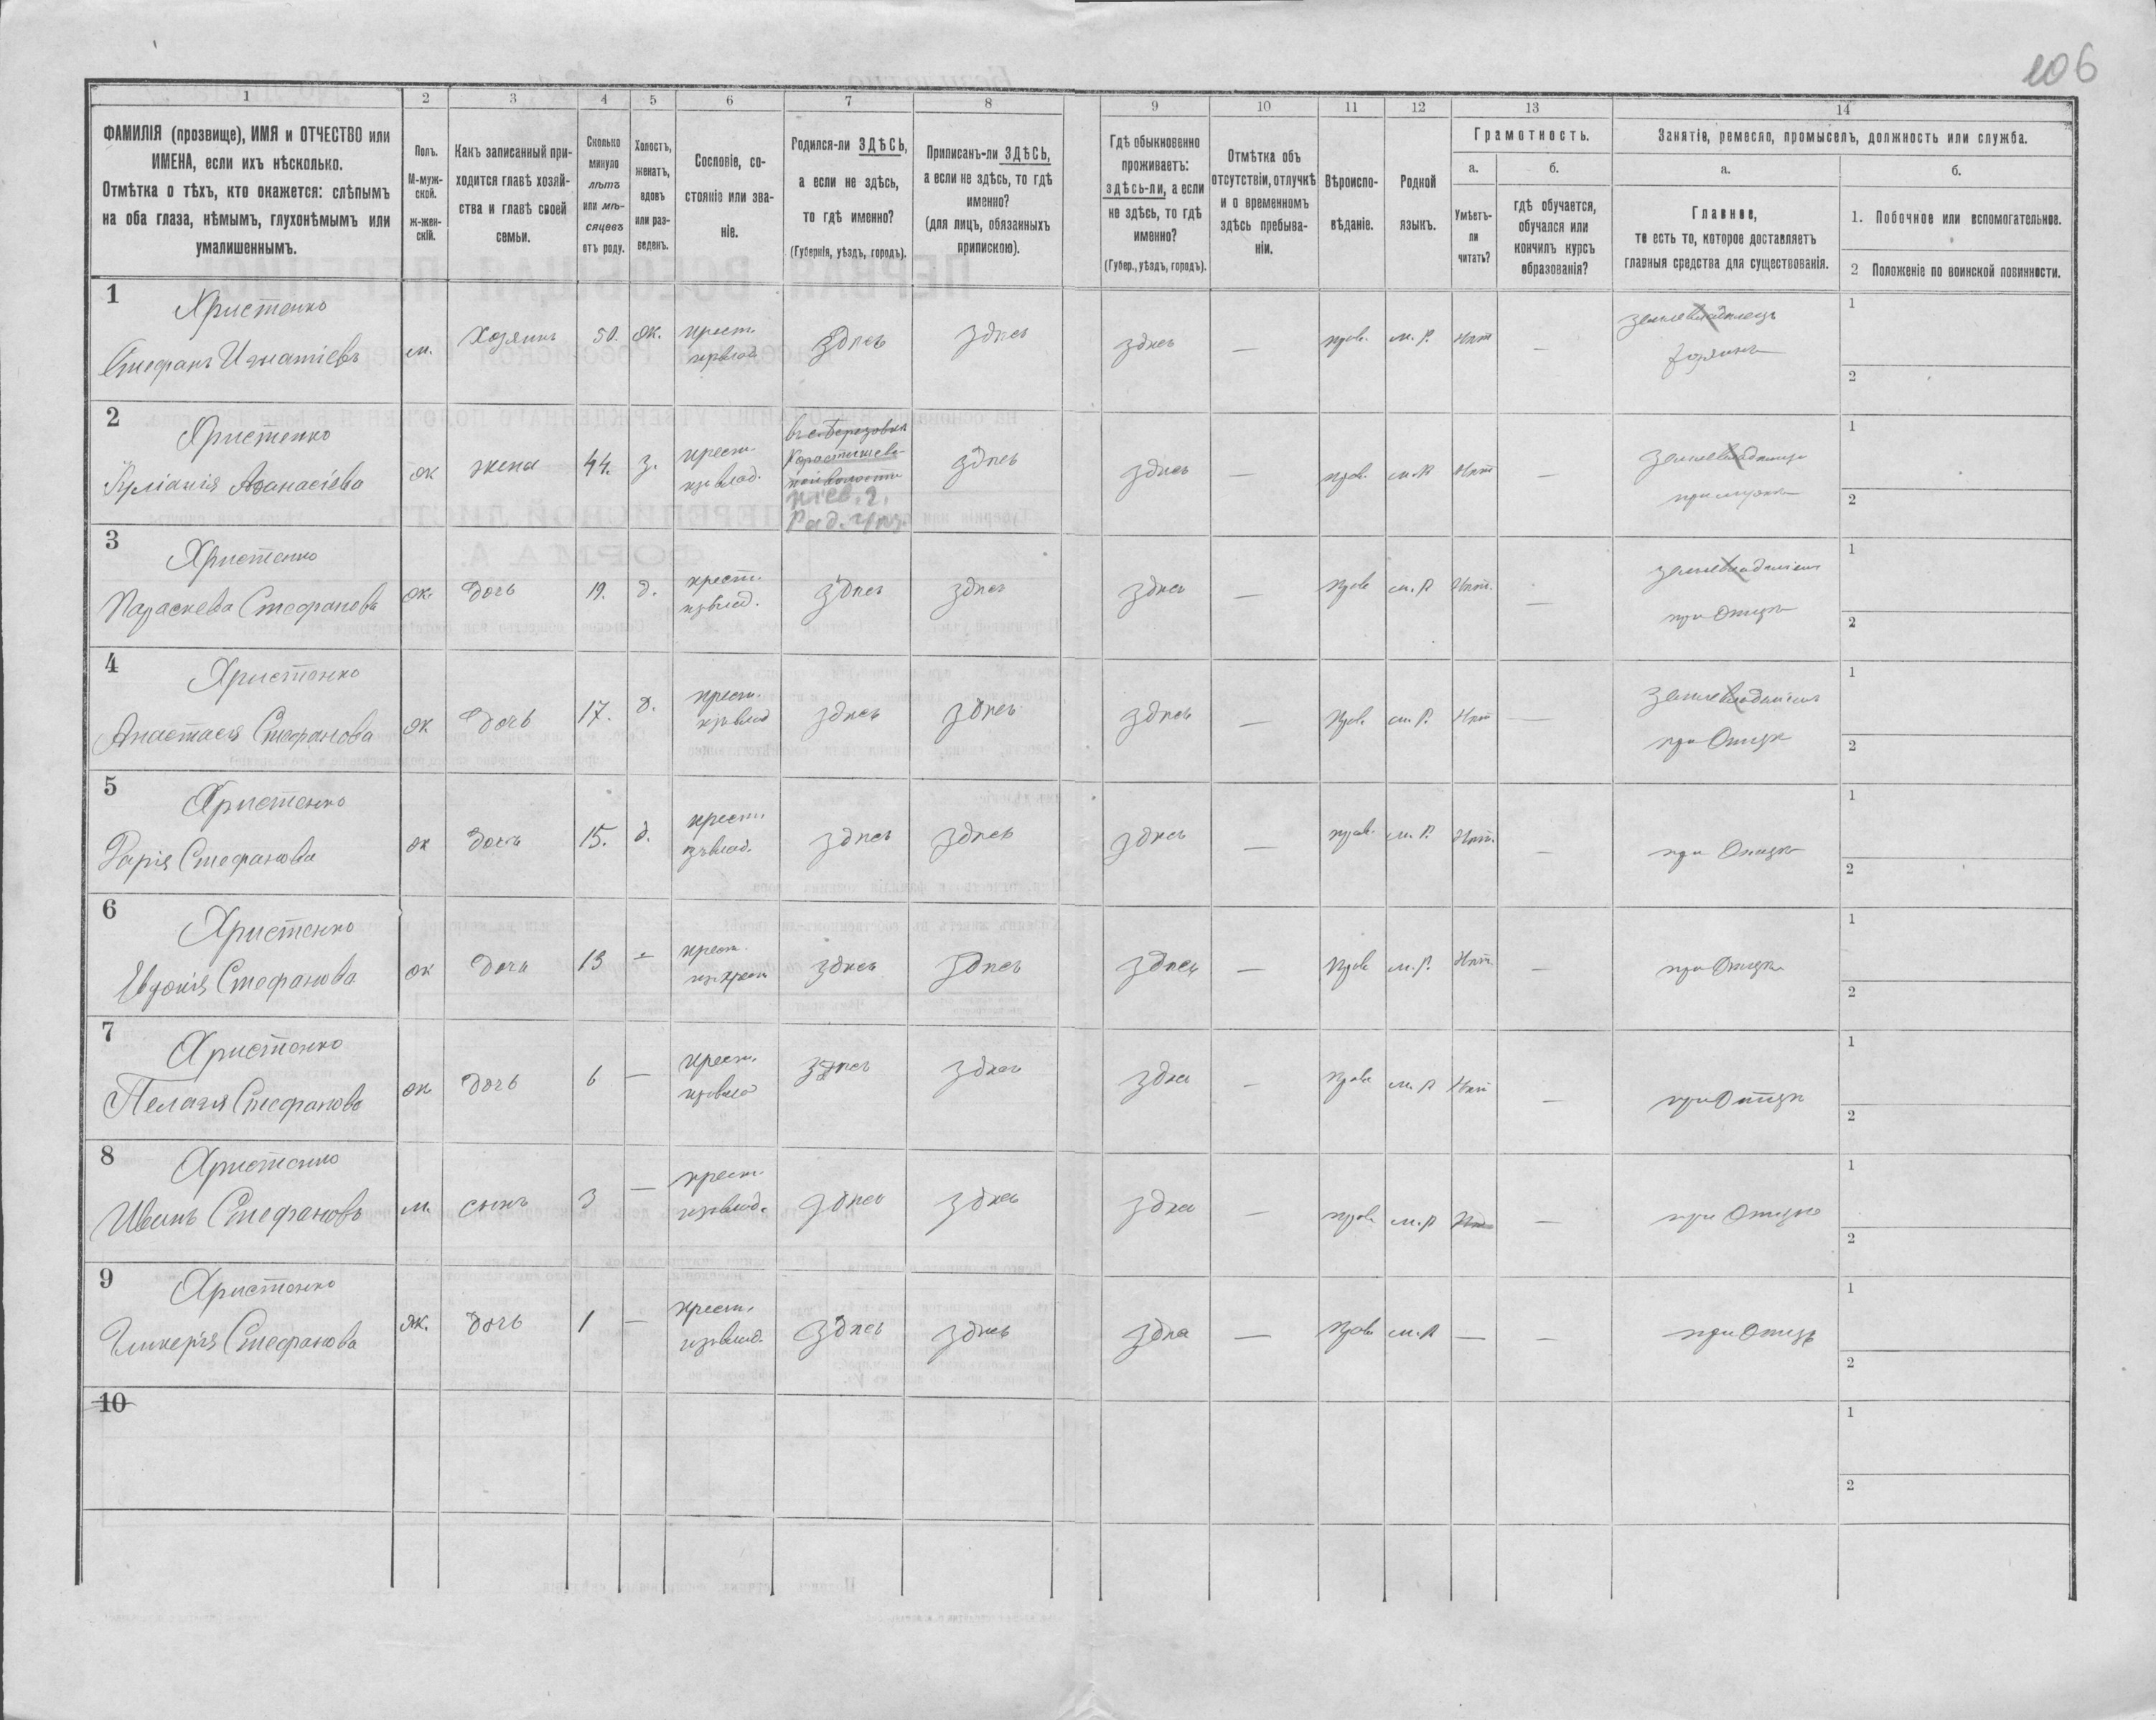 106
1
2
3
4
5
6
7
8
9
10
11
12
13
14
ФАМИЛІЯ (прозвище), ИМЯ и ОТЧЕСТВО или
ИМЕНА, если ихъ нѣсколько.
Отмѣтка о тѣхъ, кто окажется: слѣпымъ
на оба глаза, нѣмымъ, глухонѣмымъ или
умалишеннымъ.
Полъ.
М-муж-
ской.
ж-жен-
скій.
Какъ записанный при-
ходится главѣ хозяй-
ства и главѣ своей
семьи.
Сколько
минуло
лѣтъ
или мѣ-
сяцевъ
отъ роду.
Холостъ,
женатъ,
вдовъ
или раз-
веденъ.
Сословіе, со-
стояніе или зва-
ніе.
Родился-ли ЗДѢСЬ,
а если не здѣсь,
то гдѣ именно?
(Губернія, уѣздъ, городъ).
Приписанъ-ли ЗДѢСЬ,
а если не здѣсь, то гдѣ
именно?
(для лицъ, обязанныхъ
припискою).
Гдѣ обыкновенно
проживаетъ:
здѣсь-ли, а если
не здѣсь, то гдѣ
именно?
(Губер., уѣздъ, городъ).
Отмѣтка объ
отсутствіи, отлучкѣ
и о временномъ
здѣсь пребыва-
ніи.
Вѣроиспо-
вѣданіе.
Родной
языкъ.
Грамотность.
а.
Умѣетъ-
ли
читать?
б.
гдѣ обучается,
обучался или
кончилъ курсъ
образованія?
Занятіе, ремесло, промыселъ, должность или служба.
а.
Главное,
то есть то, которое доставляетъ
главныя средства для существованія.
б.
1. Побочное или вспомогательное.
2 Положеніе по воинской повинности.
1
Христенко
Стефанъ Игнатіевъ
м.
Хозяинъ
50.
ж.
крест.
изъ влад.
здѣсь
здѣсь
здѣсь
—
прав.
м. Р.
Нѣт
—
землевладелецъ
хозяинъ
1
2
2
Христенко
Афанасіева
ж
жена
44.
з.
крест.
изъ влад.
Кіев. г.
Рад. уѣз.
здѣсь
здѣсь
—
прав.
м. Р
Нѣт
—
при мужѣ
1
2
3
Христенко
Параскева Стефанова
ж.
Дочь
19.
д.
крест.
изъ влад.
здѣсь
здѣсь
здѣсь
—
Прав
м. Р
Нѣт.
—
при Отцѣ
1
2
4
Христенко
Анастасія Стефанова
ж
Дочь
17.
д.
крест.
изъ влад
здѣсь
здѣсь
здѣсь
—
Прав
м. Р.
Нѣт
—
при Отцѣ
1
2
5
Христенко
Дарія Стефанова
ж
Дочь
15.
д.
крест.
изъ влад.
здѣсь
здѣсь
здѣсь
—
прав.
м. Р.
Нѣт.
—
при Отцѣ
1
2
6
Христенко
Евдокія Стефанова
ж
Дочь
13
–
крест.
здѣсь
здѣсь
здѣсь
—
Прав
м. Р.
Нѣт
—
при Отцѣ
1
2
7
Христенко
Пелагія Стефанова
ж
Дочь
6
—
крест.
изъ влад
здѣсь
здѣсь
здѣсь
—
Прав
м. Р
Нѣт
—
при Отцѣ
1
2
8
Христенко
Иванъ Стефановъ
м.
сынъ
3
—
крест.
изъ влад.
здѣсь
здѣсь
здѣсь
—
прав
м. Р
—
при Отцѣ
1
2
9
Христенко
Гликерія Стефанова
ж.
Дочь
1
—
крест.
изъ влад.
здѣсь
здѣсь
здѣсь
—
Прав
м. Р
—
—
при Отцѣ
1
2
10
1
2